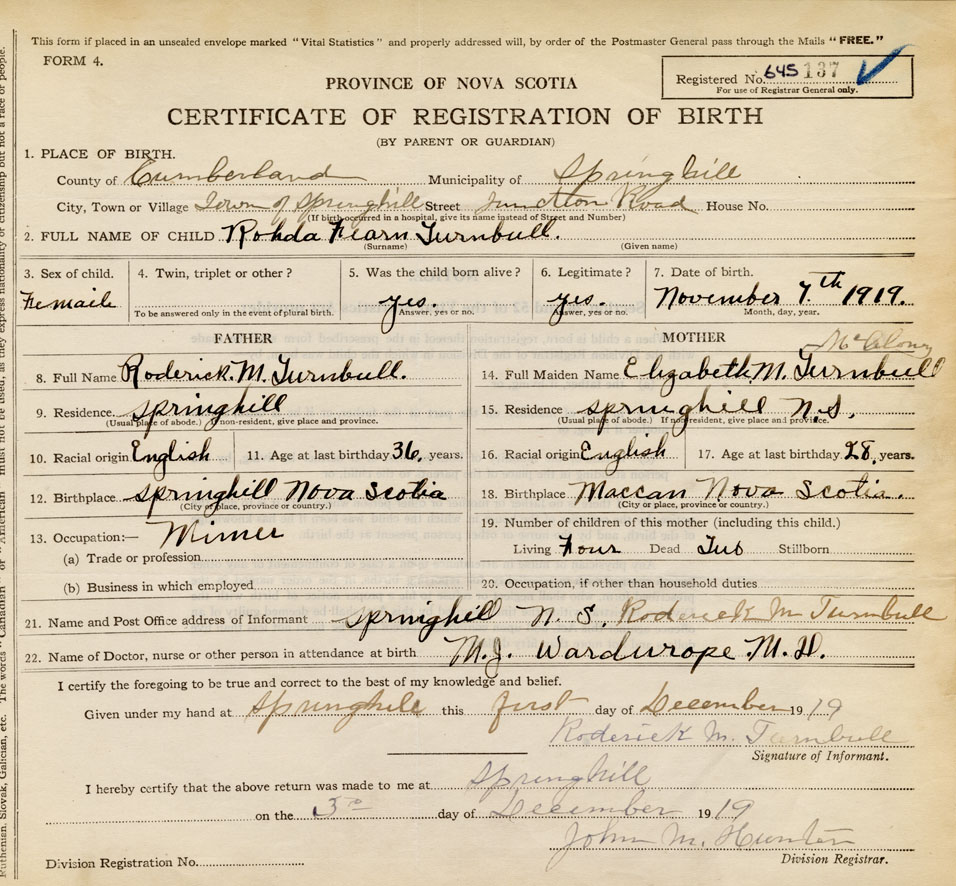 This form if placed in an unsealed envelope marked "Vital Statistics" and properly addressed will, by order of the Postmaster General pass through the Mails "FREE."
FORM 4.
Registered No. 645 137
For use of Registrar General only.
PROVINCE OF NOVA SCOTIA
CERTIFICATE OF REGISTRATION OF BIRTH
(BY PARENT OR GUARDIAN)
1. PLACE OF BIRTH.
County of Cumberland Municipality of Springhill
City, Town or Village Town of Springhill Street Junction Road House No.
(If birth occurred in a hospital, give its name instead of Street and Number)
2. FULL NAME OF CHILD Rohda Fearn Turnbull.
(Surname) (Given name)
3. Sex of child. 4. Twin, triplet or other? 5. Was the child born alive? 6. Legitimate? 7. Date of birth.
Femaile yes. yes. November 7th 1919.
To be answered only in the event of plural birth. Answer, yes or no. Answer, yes or no. Month, day, year.
FATHER MOTHER
McAlony
8. Full Name Roderick. M. Turnbull. 14. Full Maiden Name Elizabeth M. Turnbull
9. Residence springhill 15. Residence springhill N.S.
(Usual place of abode.) If non-resident, give place and province. (Usual place of abode.) If nonresident, give place and province.
10. Racial origin English 11. Age at last birthday 36, years. 16. Racial origin English 17. Age at last birthday 28, years.
12. Birthplace springhill Nova Scotia 18. Birthplace Maccan Nova Scotia.
(City or place, province or country.) (City or place, province or country.)
13. Occupation:— Mimer 19. Number of children of this mother (including this child.)
(a) Trade or profession Living Four Dead Tub Stillborn
(b) Business in which employed 20. Occupation, if other than household duties
21. Name and Post Office address of Informant springhill N. S. Roderick M Turnbull
22. Name of Doctor, nurse or other person in attendance at birth M.J. Wardwrope M.D.
I certify the foregoing to be true and correct to the best of my knowledge and belief.
Given under my hand at Springhill this first day of December 1919
Roderick M. Turnbull
Signature of Informant.
I hereby certify that the above return was made to me at Springhill
on the 3rd day of December 1919
John M. Hunter
Division Registrar.
Division Registration No.
Ruthenian, Slovak, Galician, etc. The words "Canadian" or "American" must not be used, as they express nationality or citizenship but not a race or people.